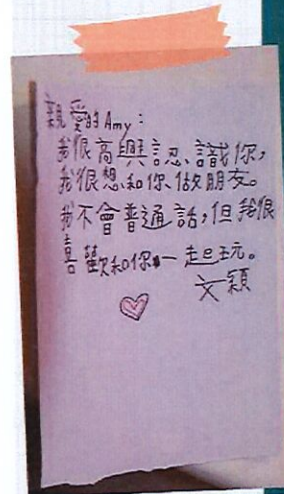 親愛的Amy：
我很高興認識你，
我很想和你做朋友。
我不會普通話，但我很
喜歡和你一起玩。
文穎